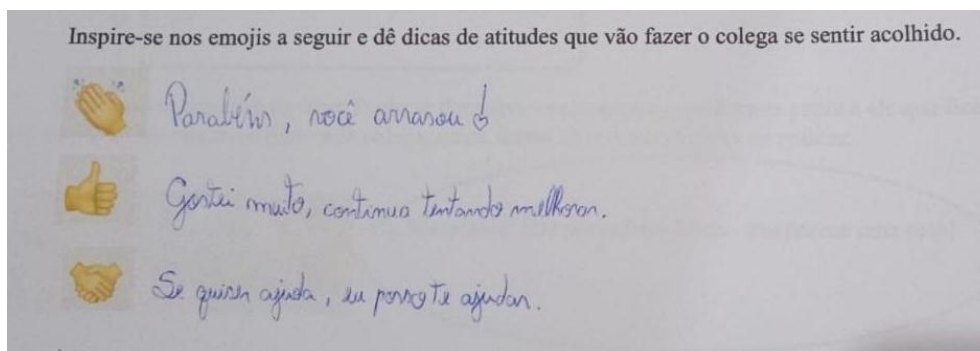 Inspire-se nos emojis a seguir e dê dicas de atitudes que vão fazer o colega se sentir acolhido.
Parabéns, você arrasou!
Gostei muito, continua tentando melhorar.
Se quiser ajuda, eu posso te ajudar.